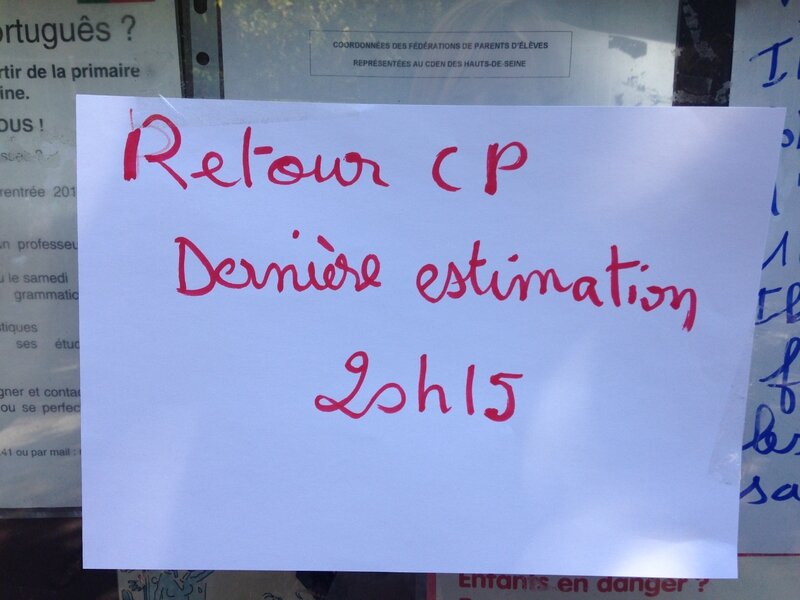 ortuguês ?
rtir de la primaire
ine.
OUS !
rentrée 201
un professeu
u le samedi
grammatic
stiques
ses étud
gner et contac
ou se perfec
41 ou par mail :
COORDONNÉES DES FÉDÉRATIONS DE PARENTS D'ÉLÈVES
REPRÉSENTÉES AU CDEN DES HAUTS-DE-SEINE
Retour CP
Dernière estimation
20h15
les
sa
Enfants en danger ?